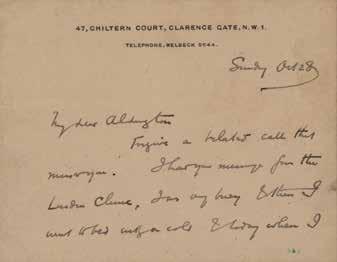 47, CHILTERN COURT, CLARENCE GATE, N.W.1.
TELEPHONE, WELBECK 5544.
Sunday Oct 28
My dear Aldington
Forgive a belated call this
I had your message from the
London Clinic, I was very busy & then I
went to bed with a cold & today when I